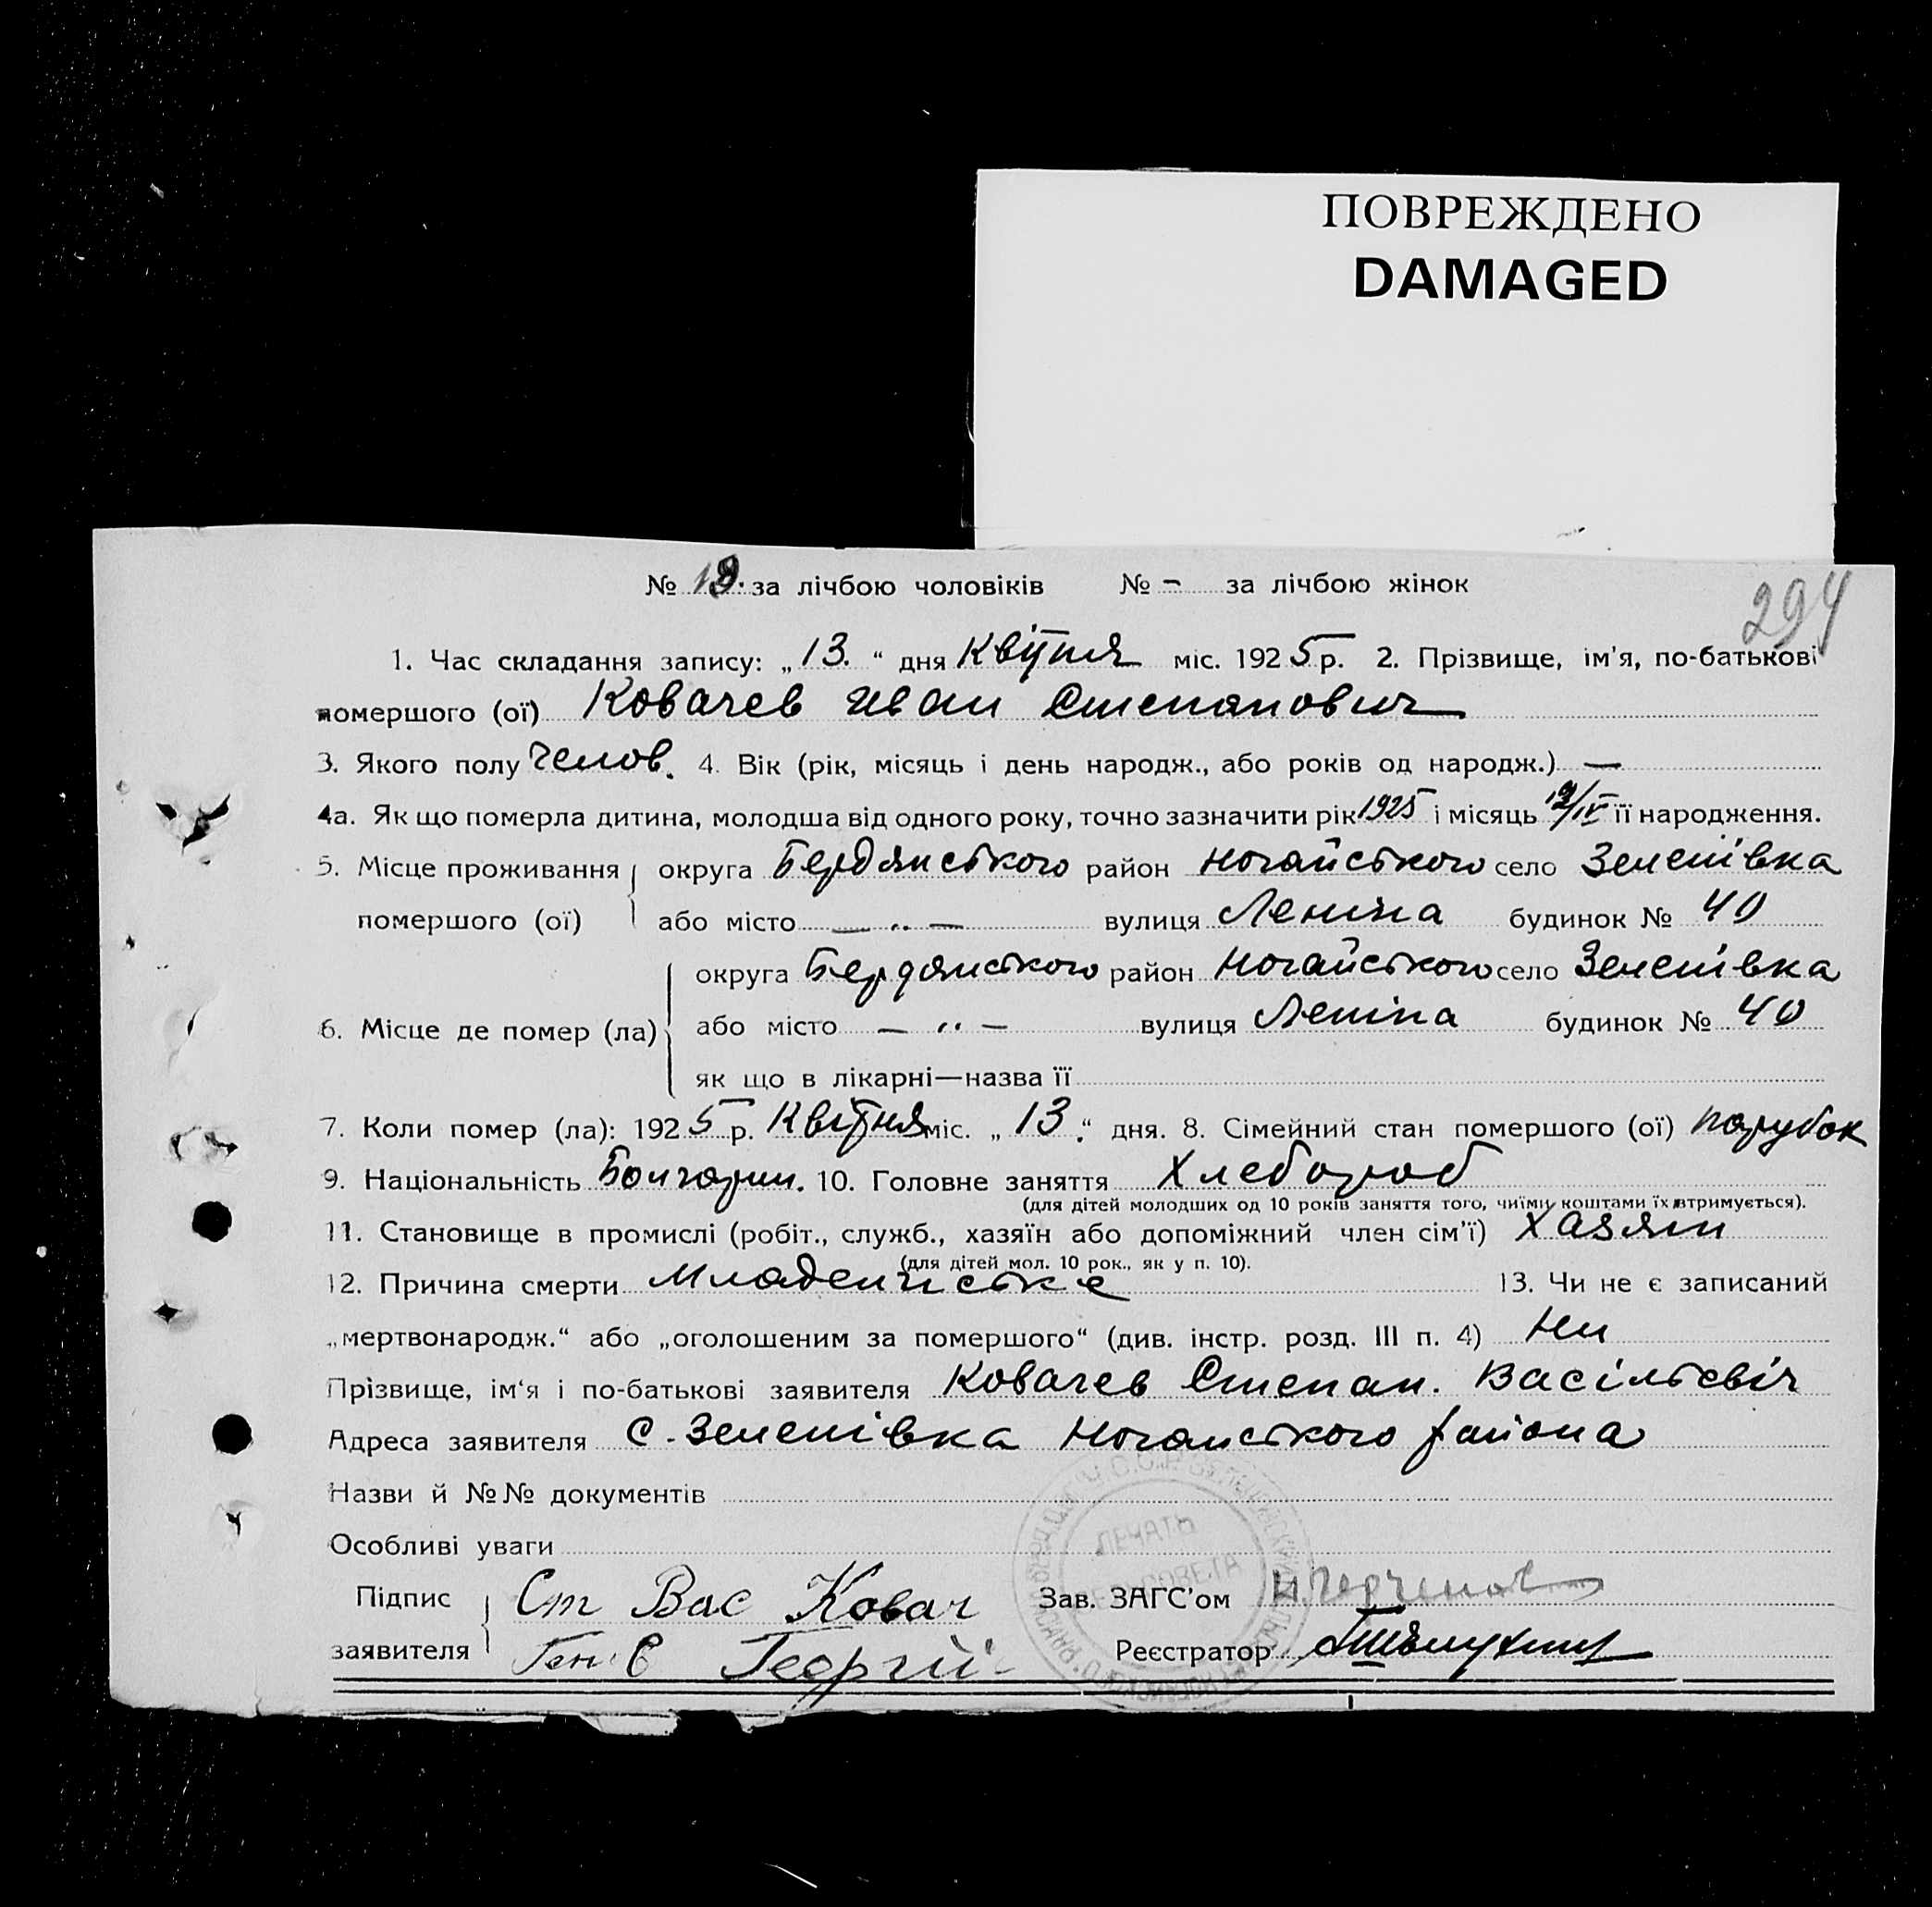 ПОВРЕЖДЕНО
DAMAGED
№ 19. за лічбою чоловіків № – за лічбою жінок
294
1. Час складання запису: „13.“ дня Квітня міс. 1925 р. 2. Прізвище, ім'я, по-батькові
помершого (ої) Ковачев Иван Степанович
3. Якого полу челов. 4. Вік (рік, місяць і день народж., або років од народж.) —
4а. Як що померла дитина, молодша від одного року, точно зазначити рік 1925 і місяць /IV її народження.
5. Місце проживання округа Бердянського район Ногайського село Зеленівка
помершого (ої) або місто — „ — вулиця Леніна будинок № 40
округа Бердянського район Ногайського село Зеленівка
6. Місце де помер (ла) або місто — „ — вулиця Леніна будинок № 40
як що в лікарні—назва її
7. Коли помер (ла): 1925 р. Квітня міс. „13.“ дня. 8. Сімейний стан помершого (ої) парубок
9. Національність Болгарин. 10. Головне заняття Хлебороб
(для дітей молодших од 10 років заняття того, чиїми коштами їх втримується).
11. Становище в промислі (робіт., служб., хазяїн або допоміжний член сім'ї) Хазяин
(для дітей мол. 10 рок., як у п. 10).
12. Причина смерти Младенчське 13. Чи не є записаний
„мертвонародж.“ або „оголошеним за помершого“ (див. інстр. розд. III п. 4) Ни
Прізвище, ім'я і по-батькові заявителя Ковачев Степан. Васільевіч
Адреса заявителя С. Зеленівка Ногайського района
Назви й №№ документів
Особливі уваги
ПЕЧАТЬ
СЕЛЬСОВЕТА
Підпис Ст Вас Ковач Зав. ЗАГС'ом
заявителя Георгій Реєстратор